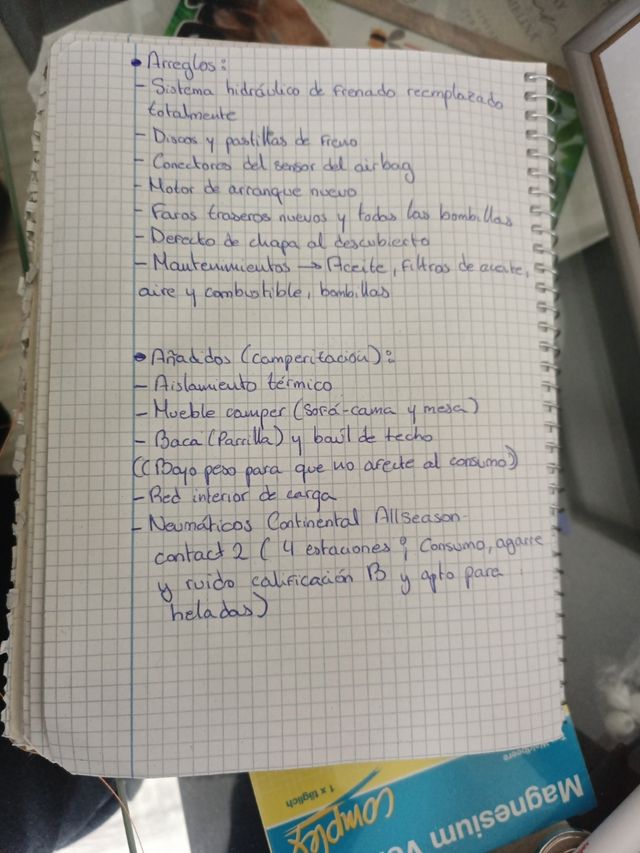 • Arreglos:
- Sistema hidráulico de frenado reemplazado
totalmente
- Discos y pastillas de freno
- Conectores del sensor del airbag
- Motor de arranque nuevo
- Faros traseros nuevos y todas las bombillas
- Defecto de chapa al descubierto
- Mantenimientos → Aceite, filtros de aceite,
aire y combustible, bombillas
• Añadidos (camperitación):
- Aislamiento térmico
- Mueble camper (sofá-cama y mesa)
- Baca (Parrilla) y baúl de techo
((Bajo peso para que no afecte al consumo))
- Red interior de carga
- Neumáticos Continental AllSeason
contact 2 ( 4 estaciones; Consumo, agarre
y ruido calificación B y apto para
heladas)
1 x täglich
complex
Magnesium